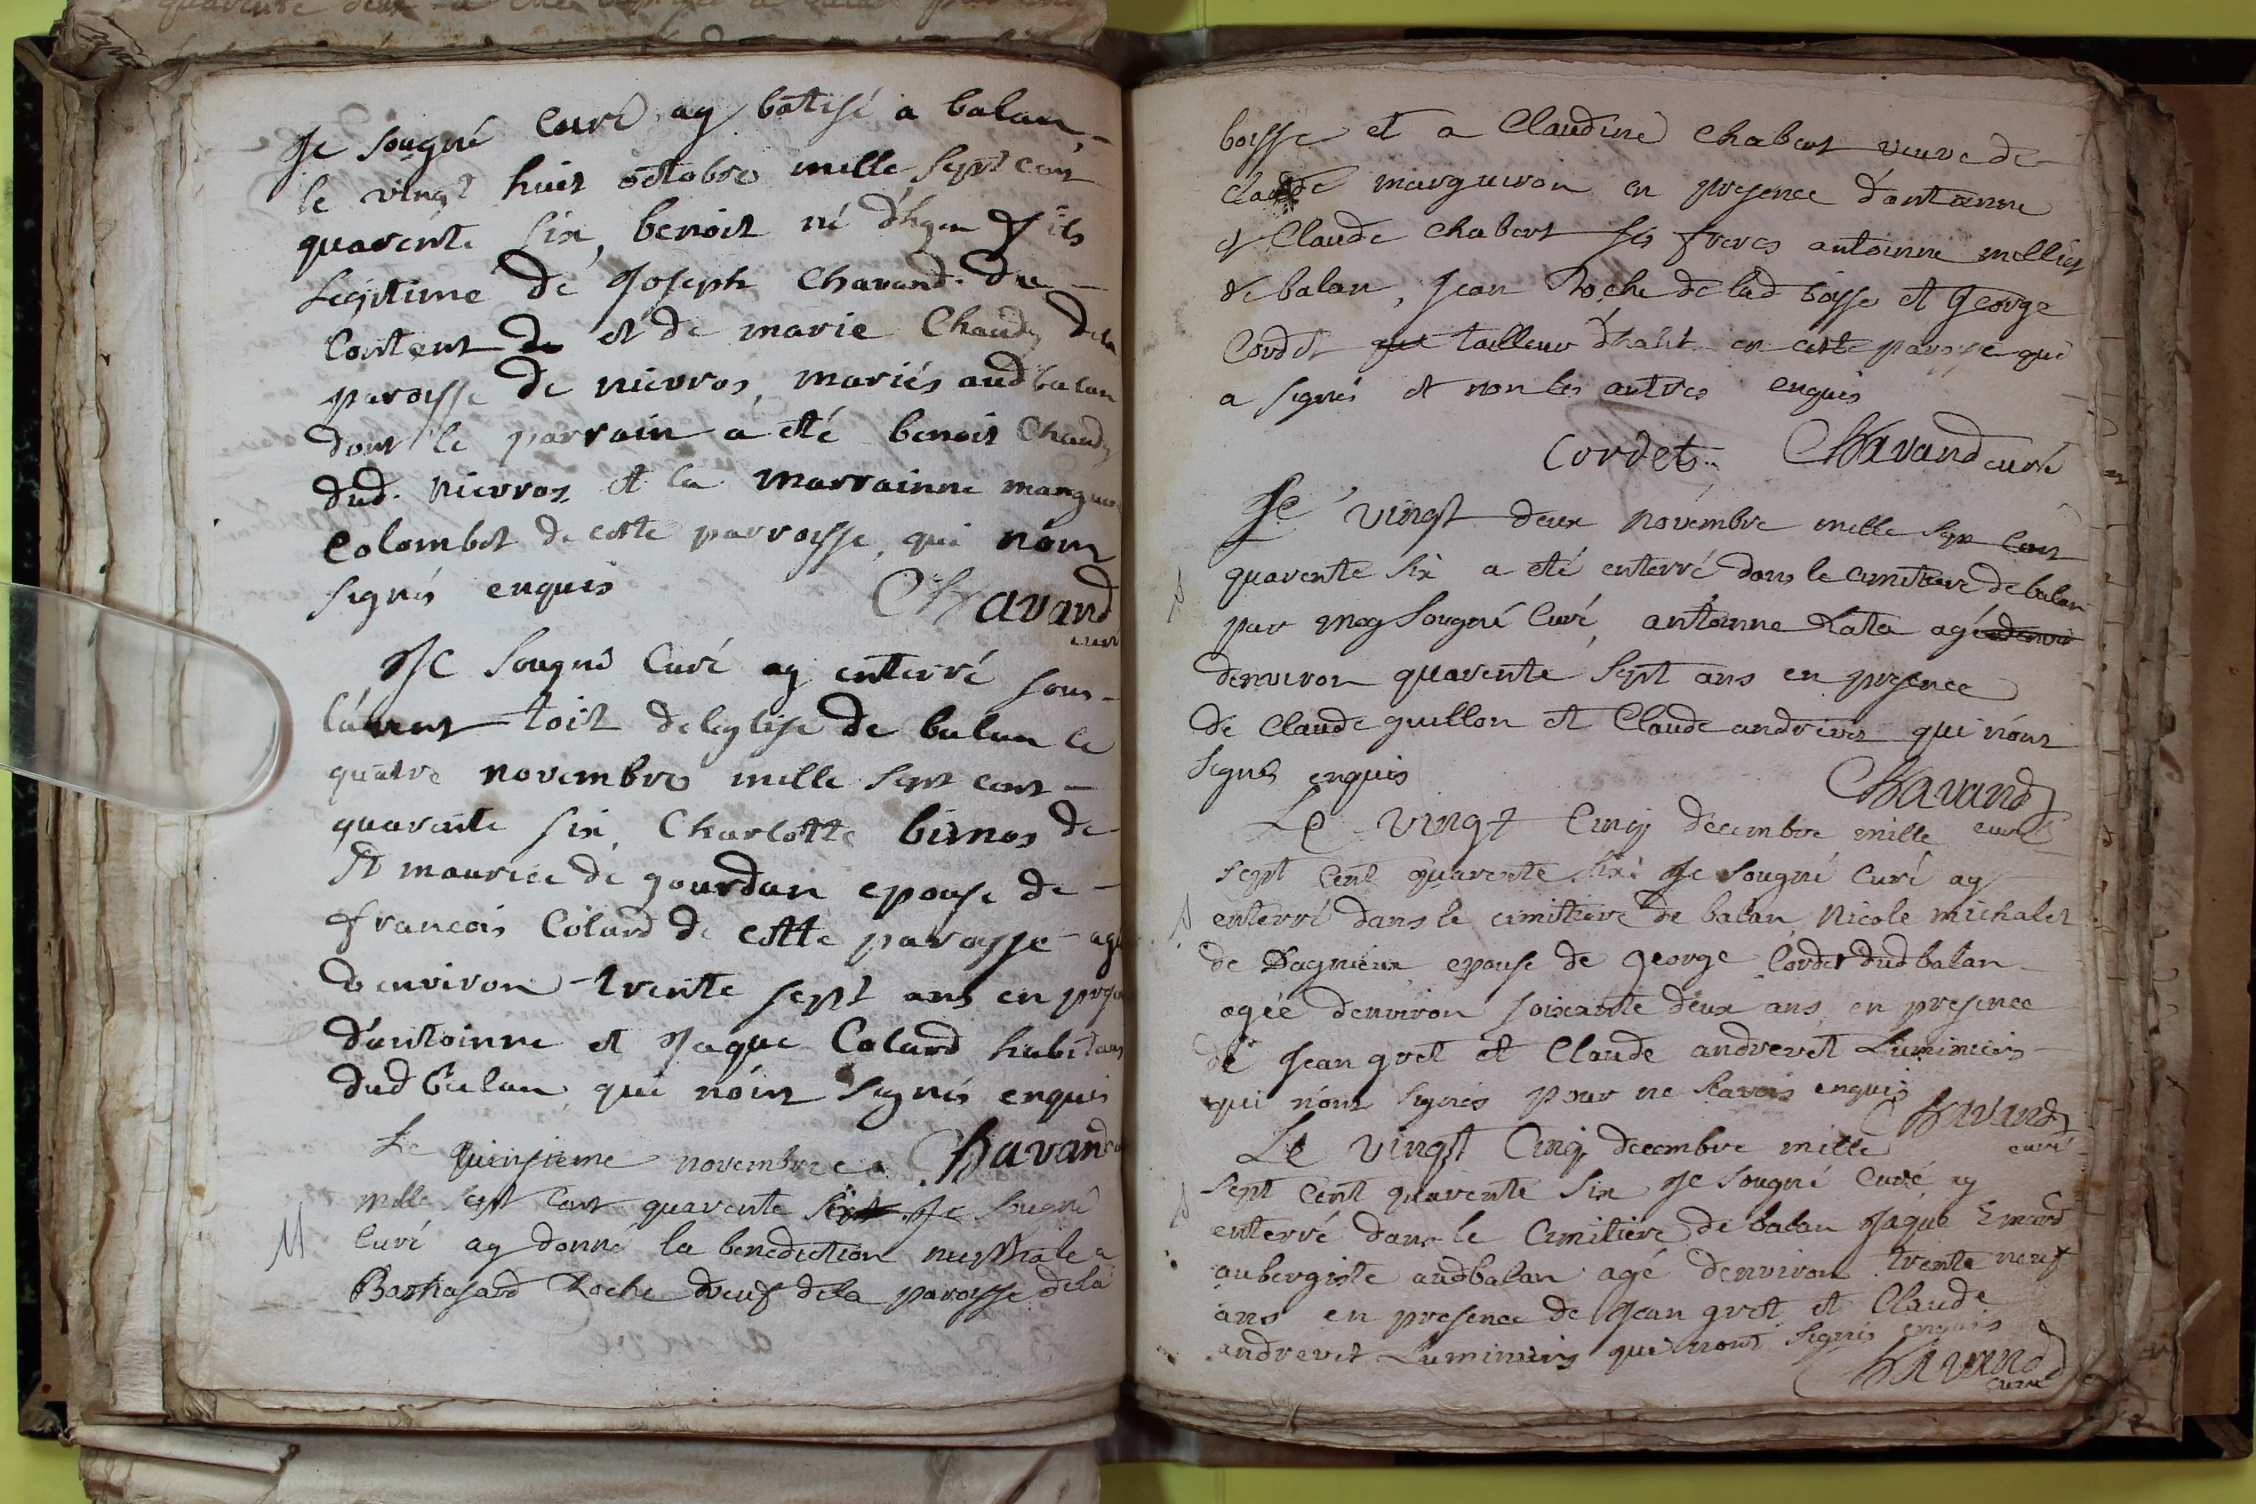 Je sougné Curé ay batisé a balan,
le vingt huit octobre mille sept cent
quarente six, benoit né d'hyer fils
Legitime de Joseph Chavand du
Content et de marie Chaudy dela
paroisse de nievros, mariés aud balan
dont le parrain a été benoit Chaudy
dud. nievros et la marrainne
Colombet de cette parroisse, qui n'ont
signés enquis
Chavand
curé
Je Sougné Curé ay enterré sous
l'auvent toit de leglise de balan le
quatre novembre mille sept cent
quarante six Charlotte birnos de
St maurice de gourdan epouse de
francois Colard de cette paroisse agé
denviron trente sept ans en
d'antoinne et Jaque Colard habitans
dud balan qui n'ont signés enquis
Chavand
Le quinsieme novembre
mille sept cent quarente six Je Sougné
M
Curé ay donné la benediction nuptiale a
Barthasard Roche veuf dela paroisse dela
boisse et a Claudine Chabert veuve de
Claude margueron en presence d'antoinne
et Claude Chabert ses freres antoinne mellier
de balan, Jean Roche de lad boisse et George
Cordet tailleur d'habit en cette paroisse qui
a signés et non les autres enquis
Cordet Chavand curé
Le vingt deux novembre mille sept cent
quarente six a eté enterré dans le cimitiere de balan
par moy Sougné Curé, antoinne Rata agé
denviron quarente sept ans en presence
de Claude guillon et Claude andrevet qui n'ont
signés enquis
Chavand
curé
Le vingt Cinq decembre mille
sept cent quarente six Je sougné Curé ay
enterré dans le cimitiere de balan Nicole michalet
de Dagnieux epouse de George Cordet dud balan
agée denviron soixante deux ans, en presence
de Jean gret et Claude andrevet Luminiers
qui n'ont signés pour ne scavoir enquis
Chavand
curé
Le vingt Cinq decembre mille
sept Cent quarente six Je sougné Curé ay
enterré dans le Cimitiere de balan Jaque Emard
aubergiste aud balan agé denviron trente neuf
ans en presence de Jean gret et Claude
andrevet Luminiers qui n'ont signés enquis
Chavand
curé